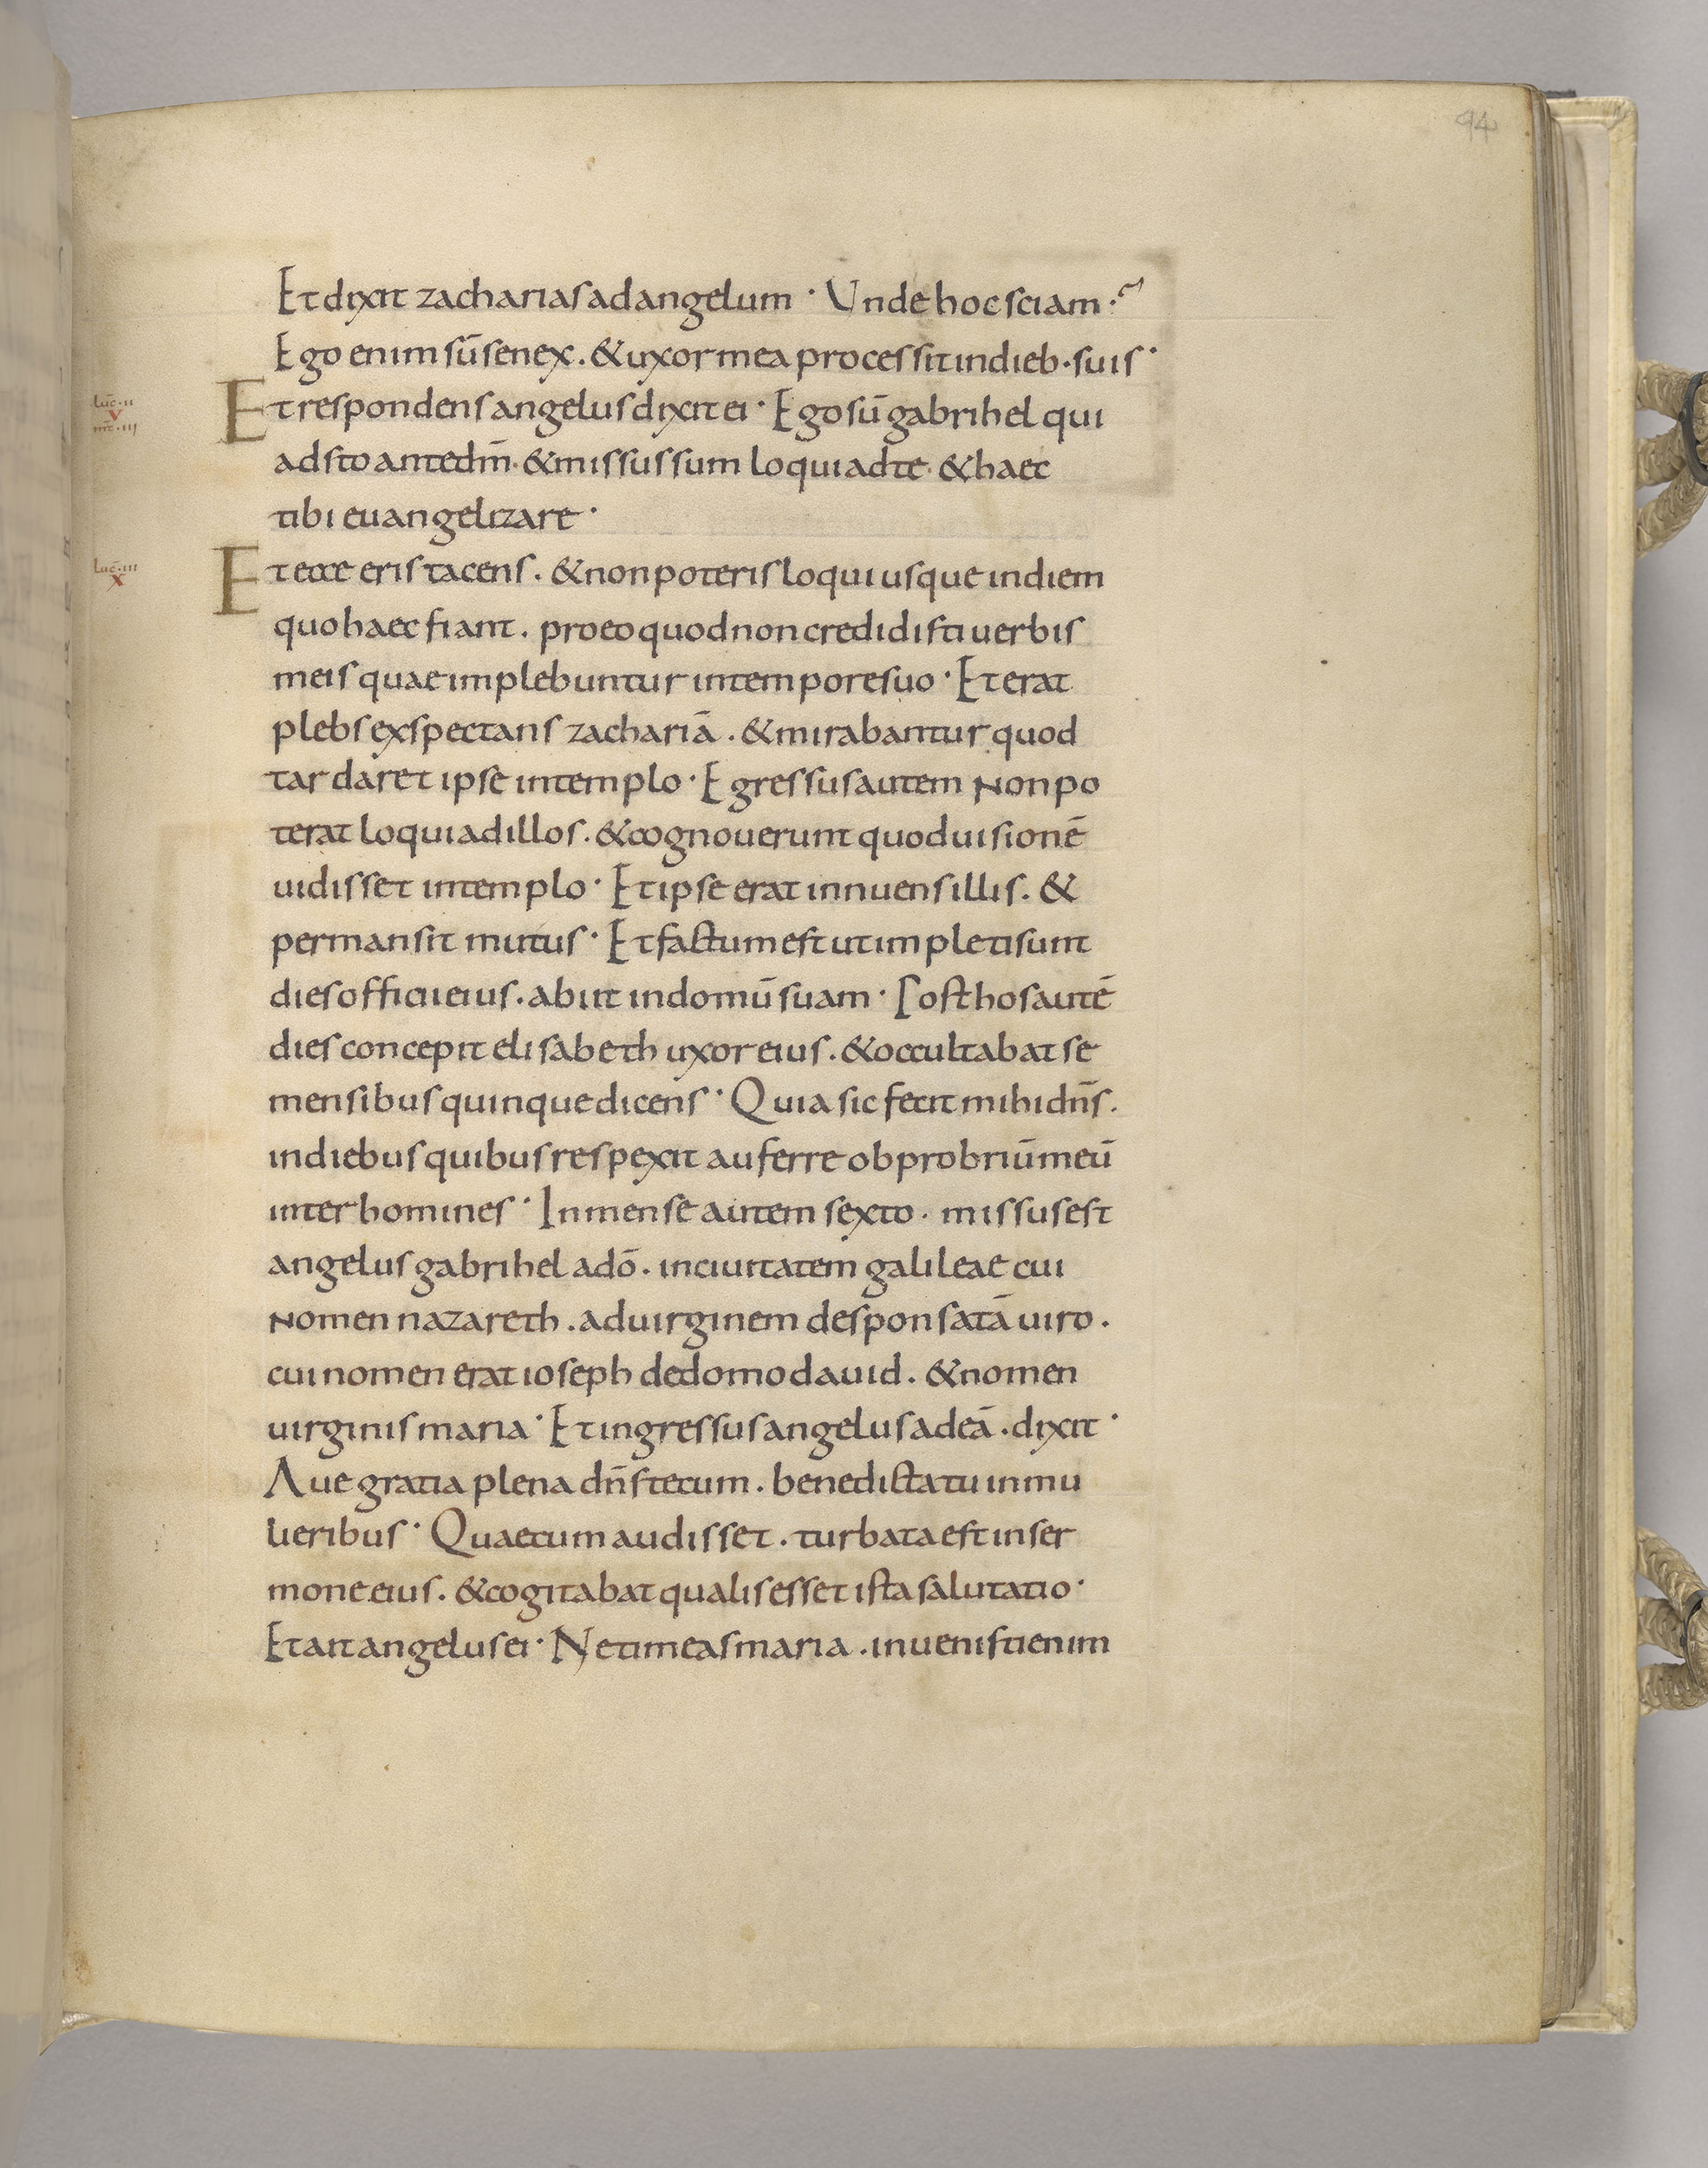 94
Et dixit zacharias ad angelum · Unde hoc sciam ·~
Ego enim sū senex . & uxor mea processit in dieb· suis ·
luc̄ · ii
v
mt̄ · iii
Et respondens angelus dixit ei · Ego sū gabrihel qui
adsto ante dm̄ · & missus sum loqui ad te · & haec
tibi euangelizare ·
luc̄ · iii
x
Et ecce eris tacens . & non poteris loqui usque in diem
quo haec fiant . pro eo quod non credidisti uerbis
meis quae implebuntur in tempore suo · Et erat
plebs exspectans zachariā . & mirabantur quod
tardaret ipse in templo · Egressus autem non po
terat loqui ad illos . & cognouerunt quod uisionē
uidisset in templo · Et ipse erat innuens illis . &
permansit mutus · Et factum est ut impleti sunt
dies officii eius . abiit in domū suam · Post hos autē
dies concepit elisabeth uxor eius . & occultabat se
mensibus quinque dicens · Quia sic fecit mihi dn̄s .
in diebus quibus respexit auferre obprobriū meū
inter homines · In mense autem sexto . missus est
angelus gabrihel a dō . in ciuitatem galileae cui
nomen nazareth . ad uirginem desponsatā uiro .
cui nomen erat ioseph de domo dauid . & nomen
uirginis maria · Et ingressus angelus ad eā . dixit ·
Aue gratia plena dn̄s tecum . benedicta tu in mu
lieribus · Quae cum audisset . turbata est in ser
mone eius . & cogitabat qualis esset ista salutatio ·
Et ait angelus ei · Ne timeas maria . inuenisti enim